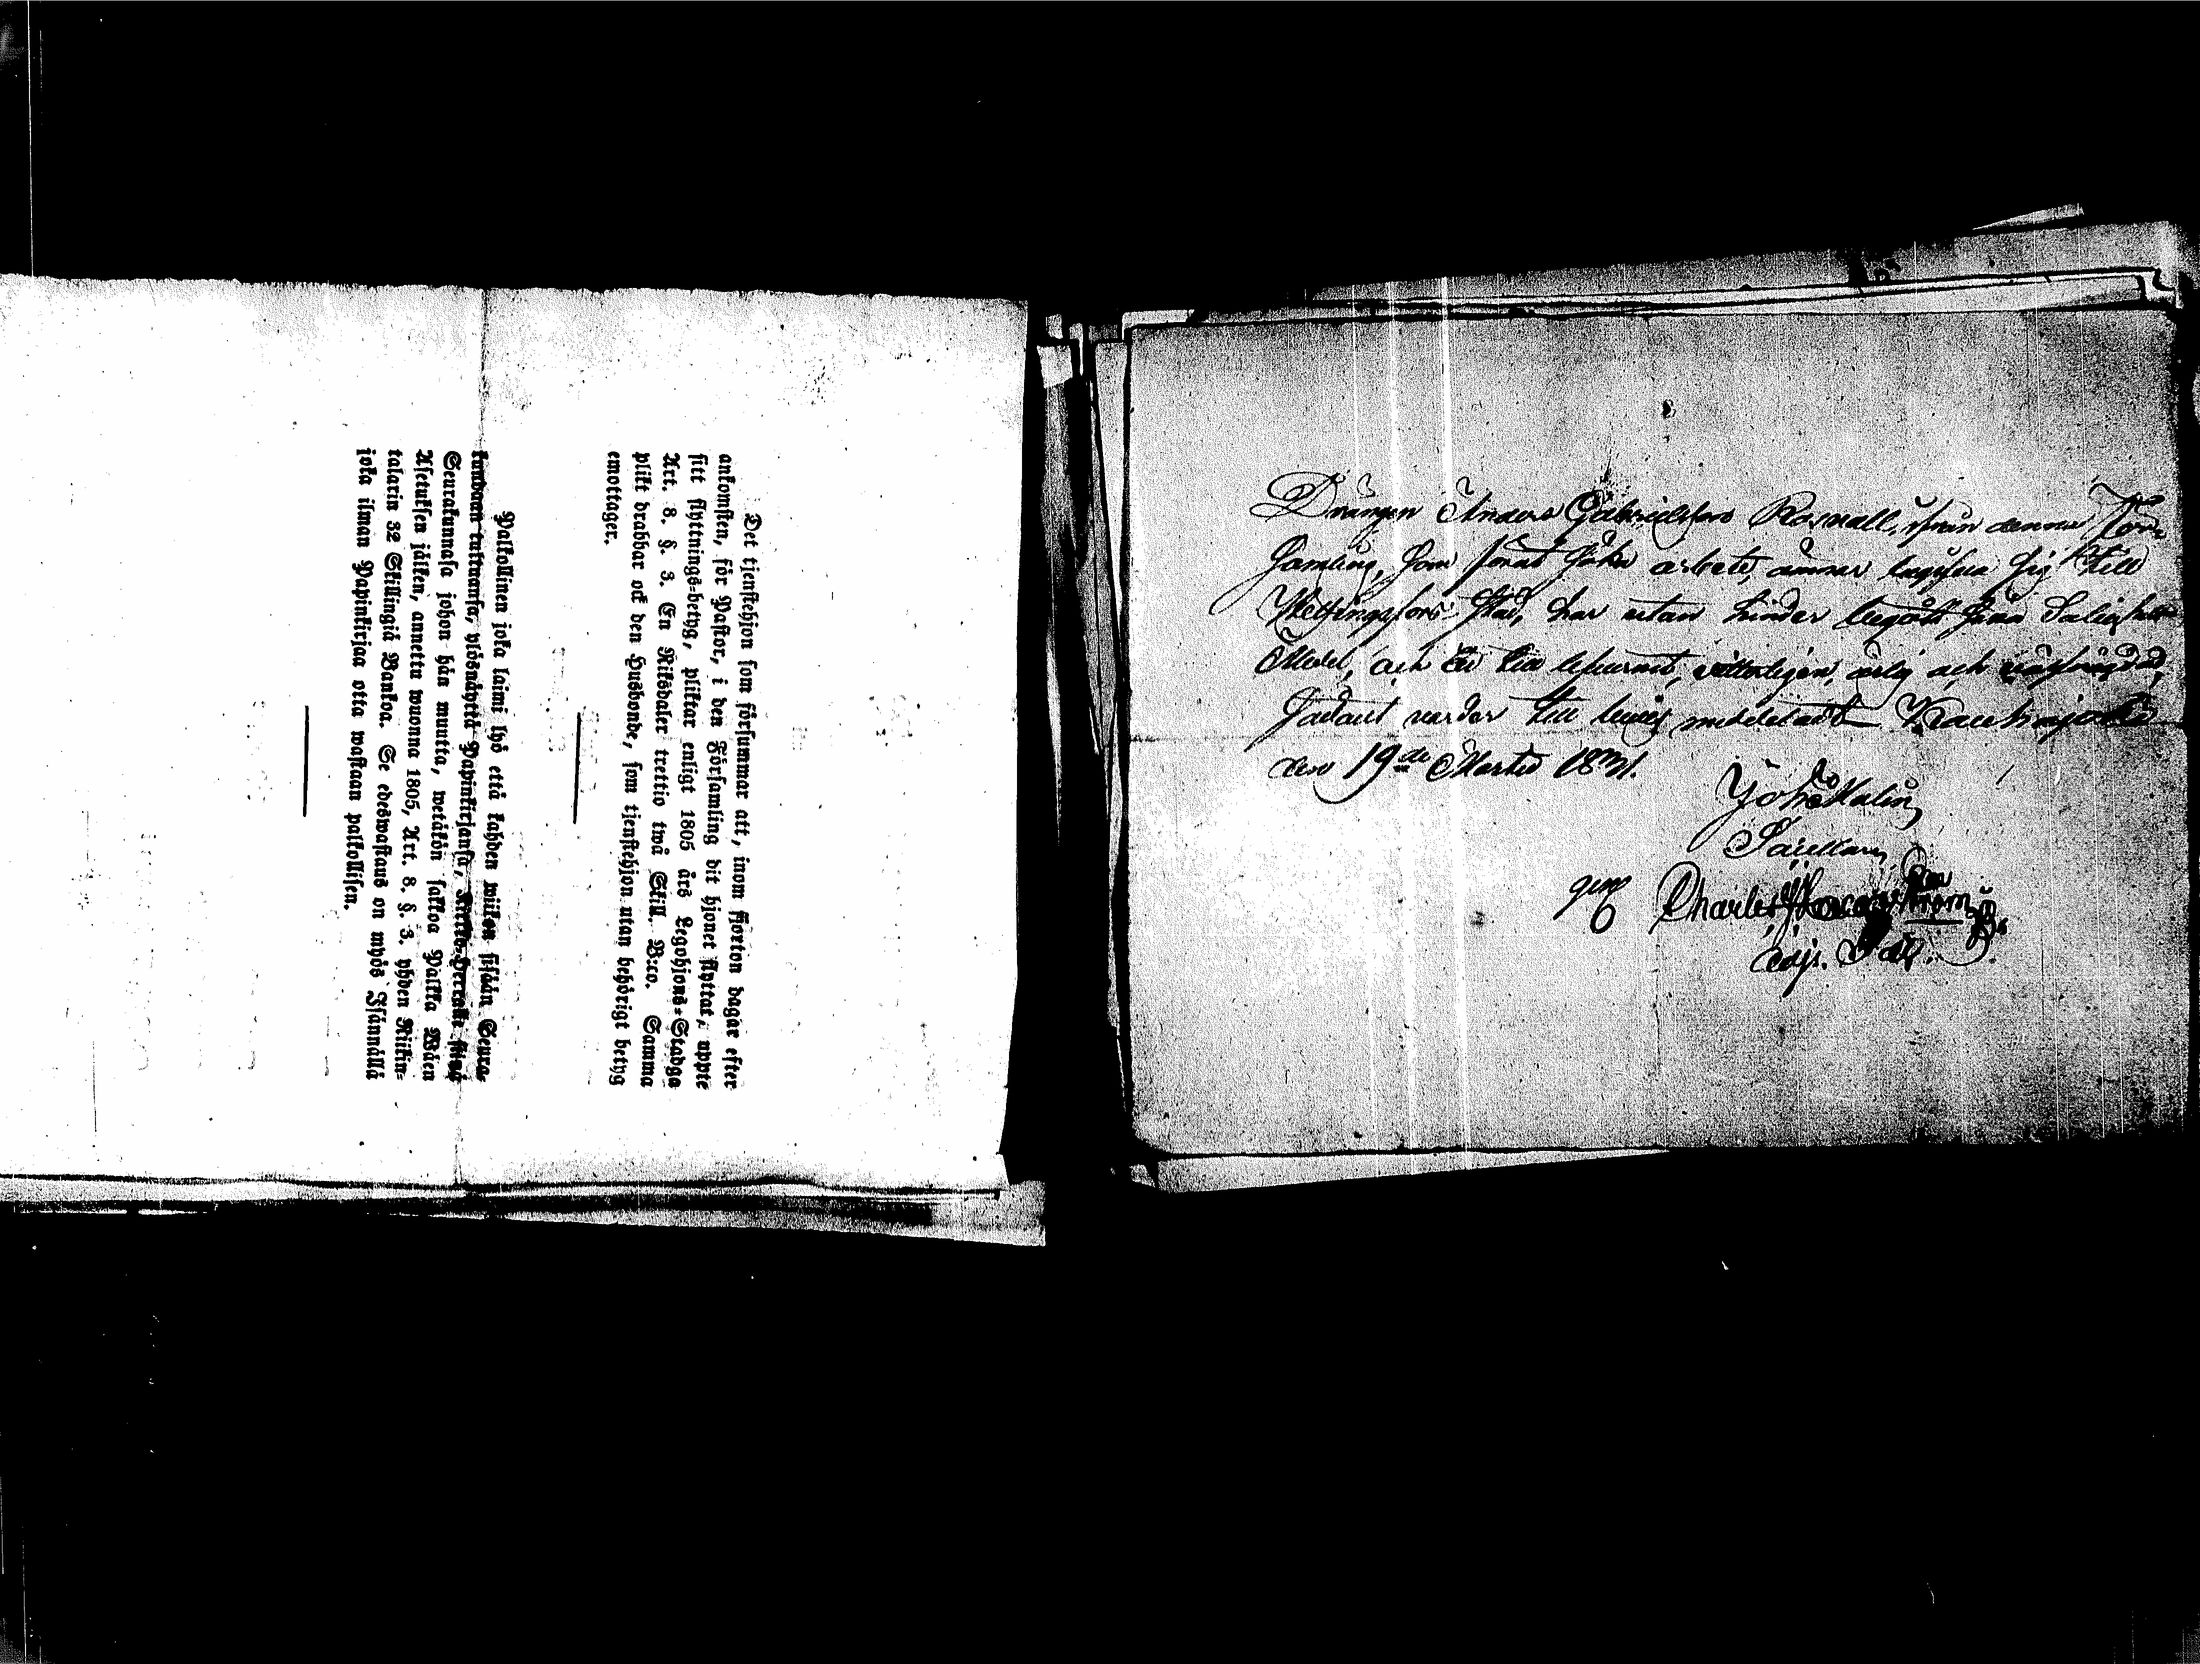 Det tjenstehjon som försummar att, inom fjorton dagar efter
ankomsten, för Pastor, i den Församling dit hjonet flyttat, uppte
sitt flyttnings-betyg, pliktar enligt 1805 års Legohjons-Stadga
Art. 8. §. 3. En Riksdaler trettio twå Skill. B:co. Samma
plikt drabbar ock den Husbonde, som tjenstehjon utan behörigt betyg
emottager.
Palkollinen joka laimi lyö että kahden wiikon sisään Seura-
kundaan tultuansa, ylösnäyttä Papinkirjansa, Kirkko-Herralle siinä
Seurakunnasa johon hän muutta, wetäkön sakkoa Palkka Wäen
Asetuksen jälken, annettu wuonna 1805, Art. 8. §. 3. yhden Riikin-
talarin 32 Skillingiä Bankoa. Se edeswastaus on myös Isännällä
joka ilman Papinkirjaa otta wastaan palkollisen.
Drängen Anders Gabrielsson Rosvall, ifrån denna För-
samling, som för att söka arbete, ämnar begifva sig till
Helsingfors Stad, har utan hinder begått sina Salighets
Medel, och är till lefvernet, välfrägdad,
Sådant varder till bevis meddeladt Kauhajoki
den 19de Martii 1831.
Joh. Malin
Sacellan
gm Charles
adj. Sac.